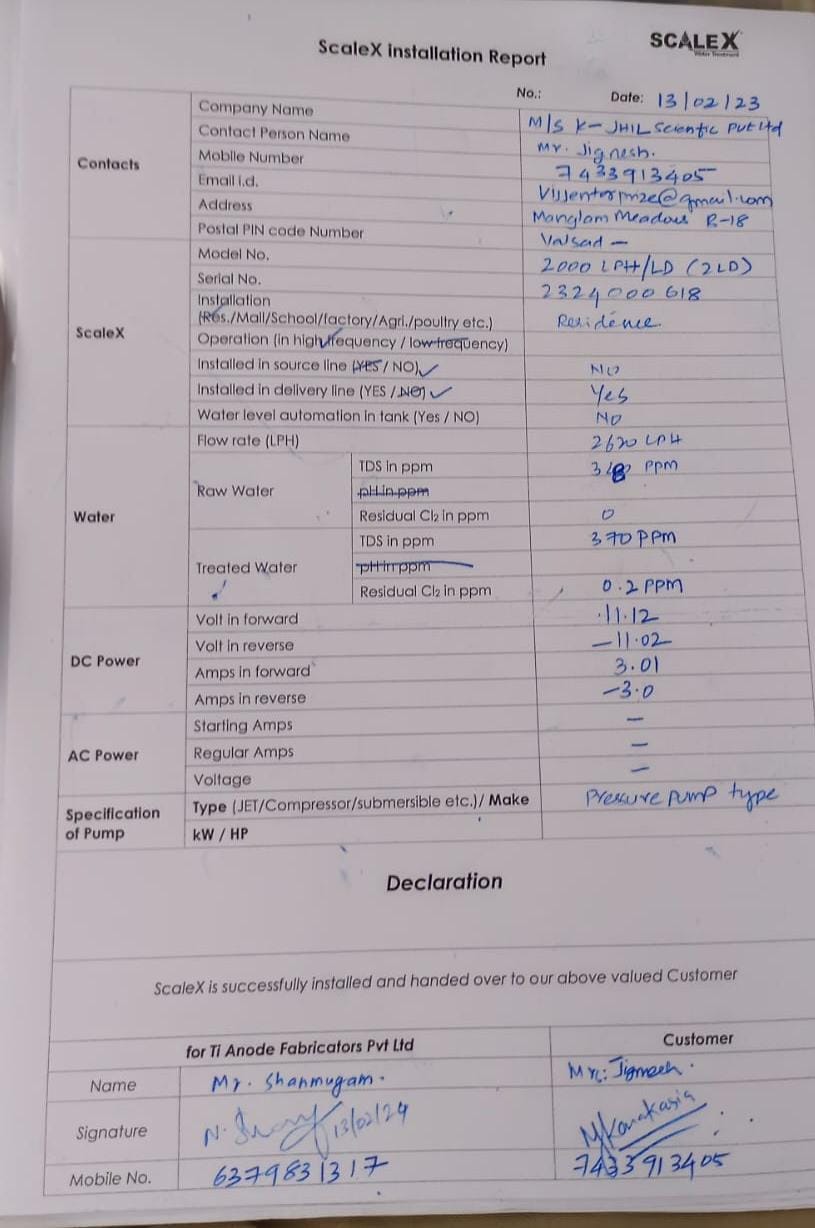 SCALEX
Water Treatment
ScaleX installation Report
No.: Date: 13/02/23
Contacts
Company Name M/S K-JHIL Scientfic Pvt Ltd
Contact Person Name Mr. Jignesh.
Mobile Number 7433913405
Email i.d. Vijenterprize@gmail.com
Address Manglam Meadows B-18
Postal PIN code Number Valsad -
ScaleX
Model No. 2000 LPH/LD (2LD)
Serial No. 2324000618
Installation
(Res./Mall/School/factory/Agri./poultry etc.) Residence.
Operation (in high frequency / low frequency)
Installed in source line (YES / NO) ✓ NO
Installed in delivery line (YES / NO) ✓ Yes
Water level automation in tank (Yes / NO) NO
Water
Flow rate (LPH) 2620 LPH
Raw Water
TDS in ppm PPM
pH in ppm
Residual Cl₂ in ppm 0
Treated Water
TDS in ppm 370 PPM
pH in ppm
Residual Cl₂ in ppm 0.2 PPM
DC Power
Volt in forward 11.12
Volt in reverse -11.02
Amps in forward 3.01
Amps in reverse -3.0
AC Power
Starting Amps -
Regular Amps -
Voltage -
Specification
of Pump
Type (JET/Compressor/submersible etc.)/ Make Pressure pump type
kW / HP
Declaration
ScaleX is successfully installed and handed over to our above valued Customer
for Ti Anode Fabricators Pvt Ltd Customer
Name Mr. Shanmugam. Mr: Jignesh.
Signature 13/02/24 Kanakasia
Mobile No. 6379831317 7433913405